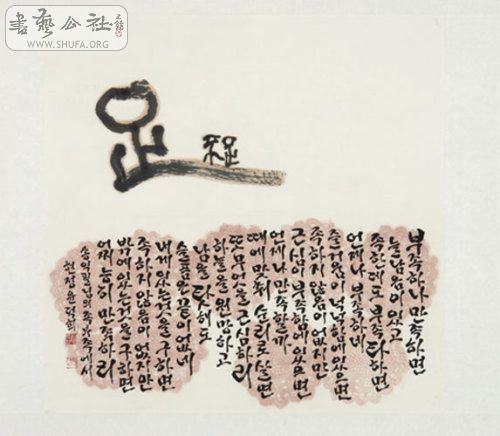 書藝公社
WWW.SHUFA.ORG
足
不足
부족하나 만족하면
늘 남음이 있고
족한대도 부족타하면
언제나 부족하네
즐거움이 넉넉함에 있으면
족하지 않음이 없지만
근심이 부족함에 있으면
언제나 만족할까
때에 맞춰 순리로 살면
또 무엇을 근심하리
하늘을 원망하고
남을 탓해도
슬픔은 끝이 없네
내게 있는 것을 구하면
족하지 않음이 없지만
밖에 있는 것을 구하면
어찌 능히 만족하리
송익필님의 족부족에서